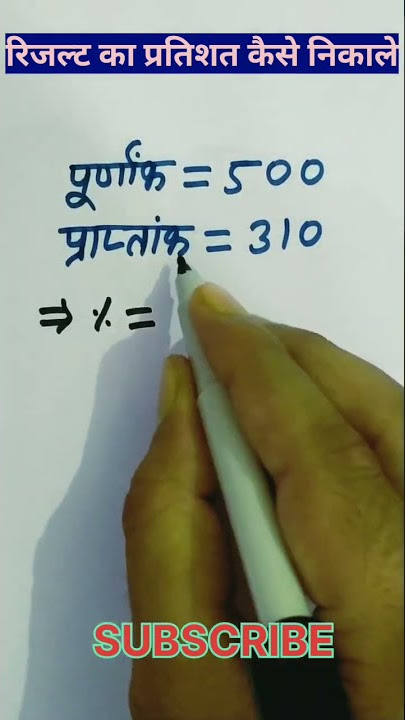 रिजल्ट का प्रतिशत कैसे निकाले
पूर्णांक = 500
प्राप्तांक = 310
⇒ % =
SUBSCRIBE